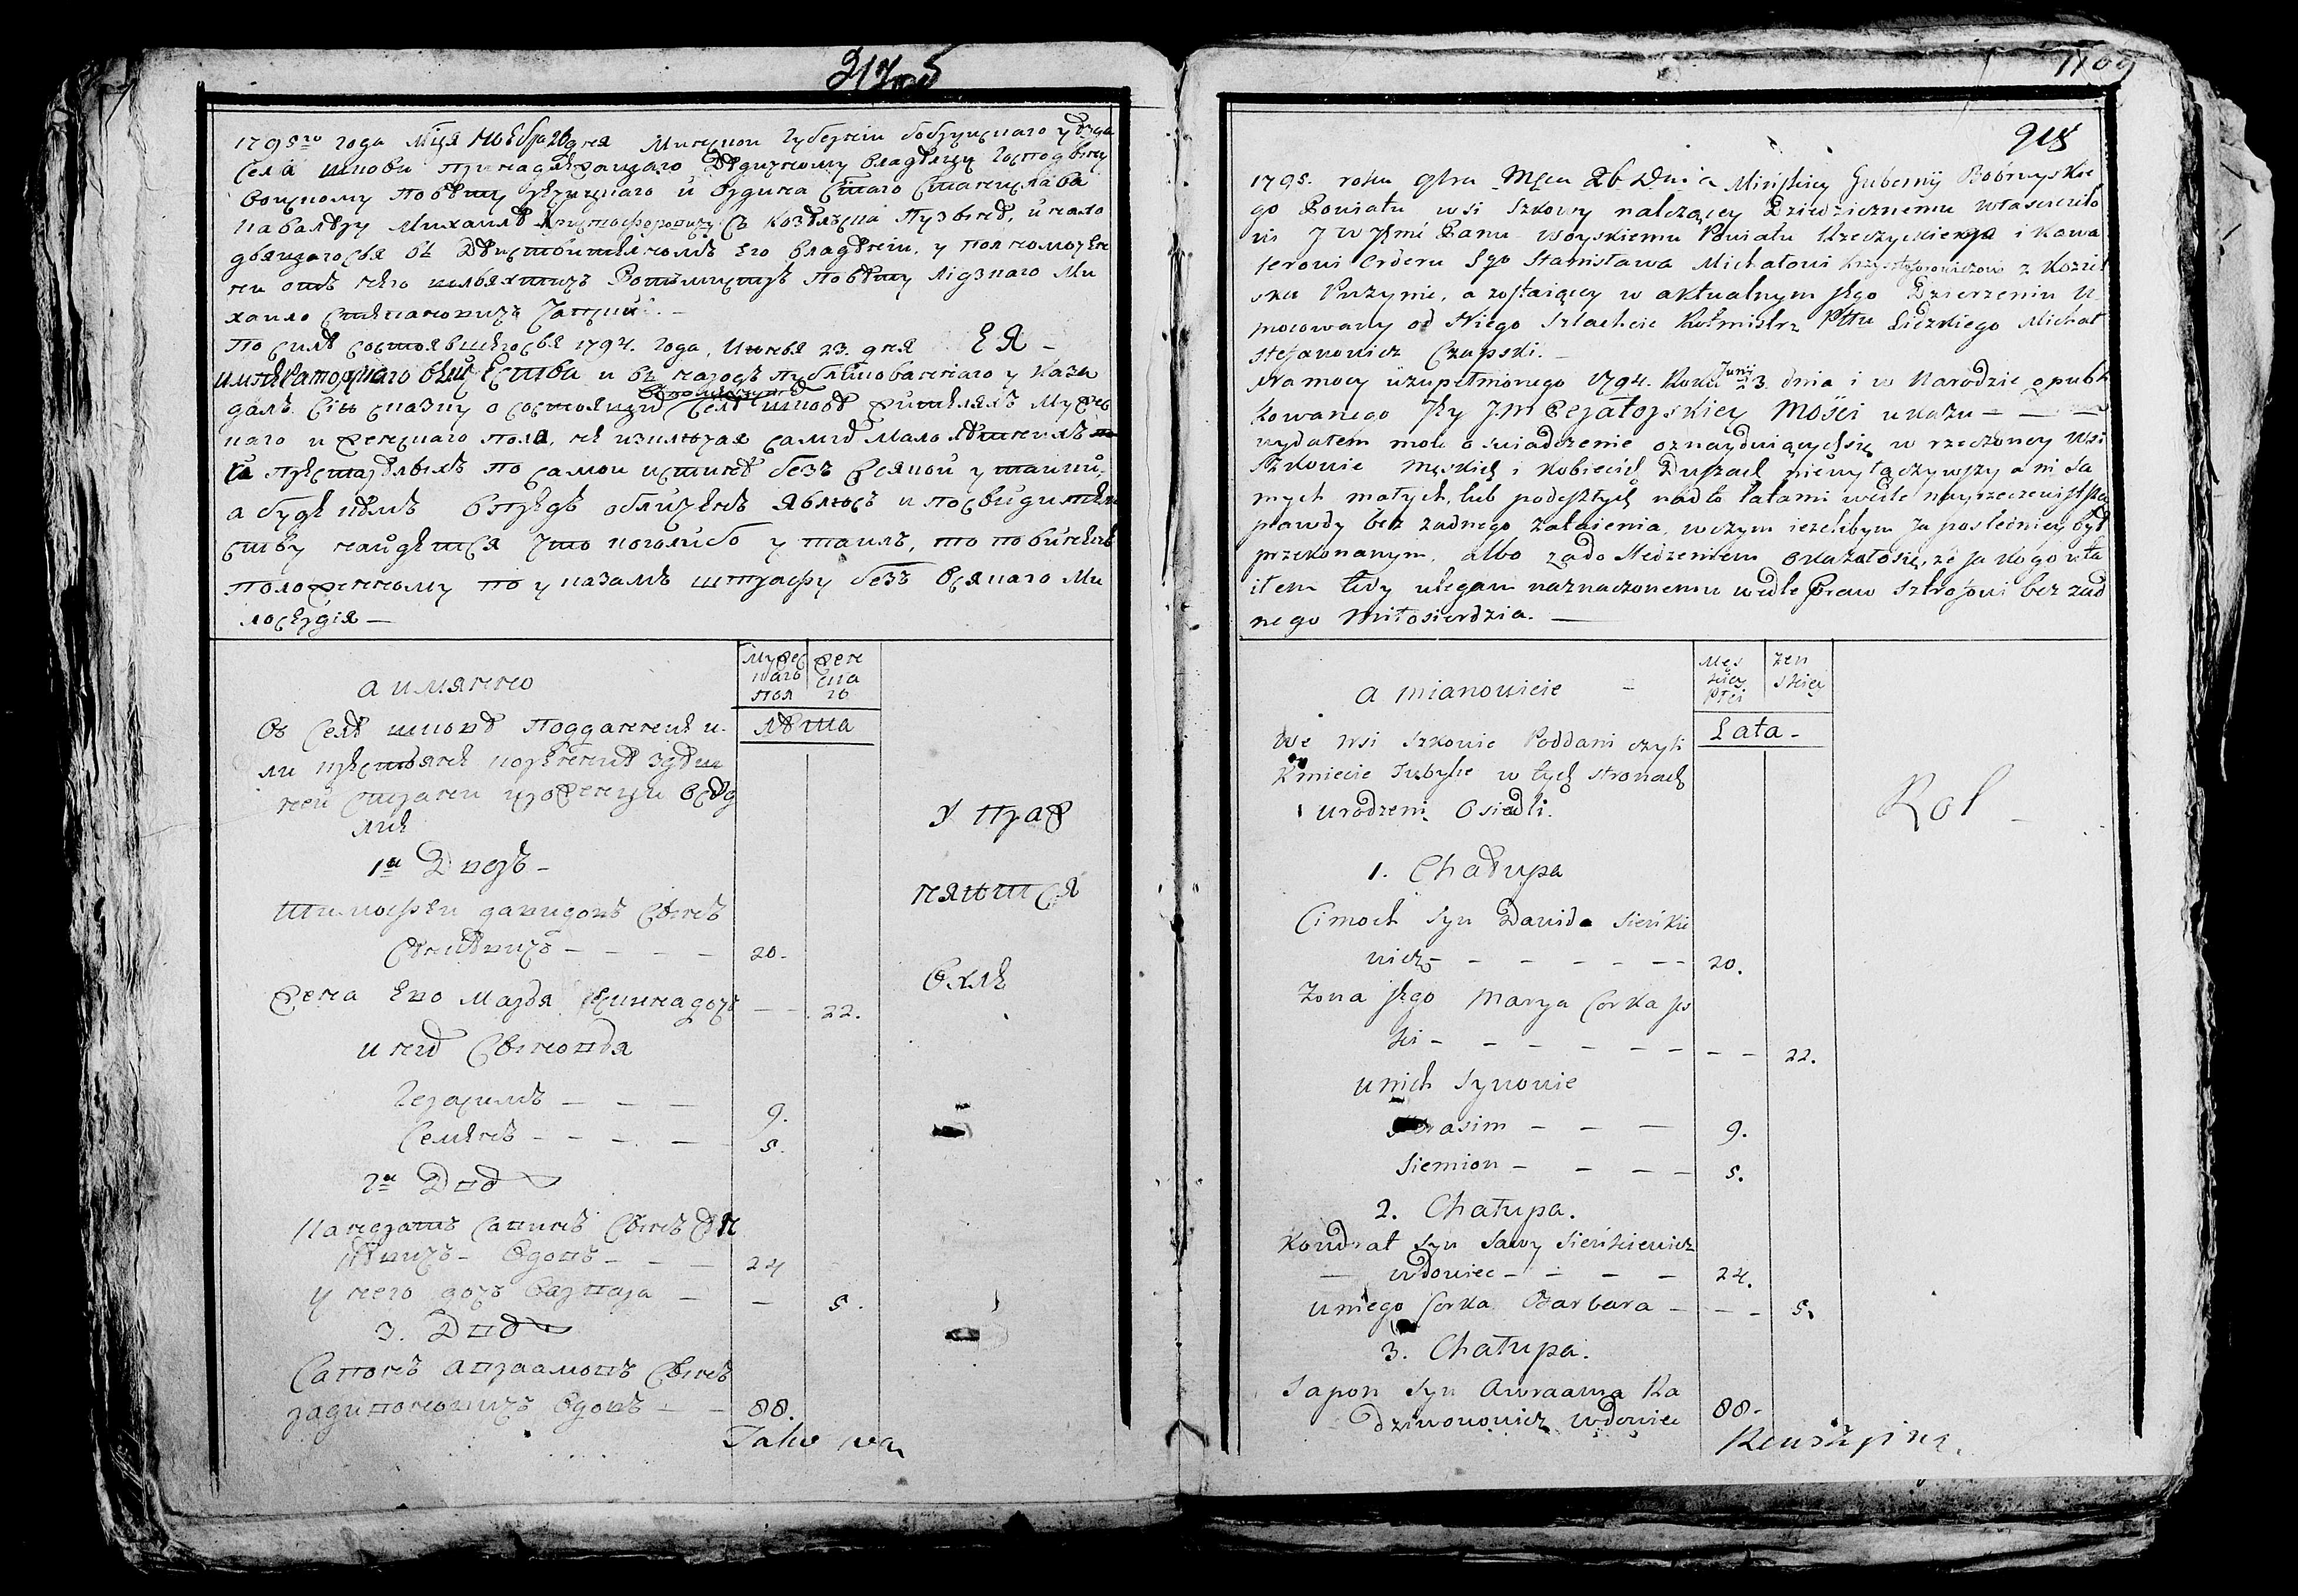 1795го года мца ноебра 26 дня Минской Губернии бобруйскаго уезда
села шкови принадлежащаго Дедичному владелцу Господину
войскому повету речицкаго и ордина Стаго Станислава
кавалеру Михаилу Христофоровичу съ козелска Пузыне, и нахо
дящагося въ Действителномъ его владении, уполномочен
ни отъ него шляхтичъ Ротмистръ Повету лидзкаго Ми
хаило Степановичъ Чапский. —
По силе состоявшегося 1794. года, Июня 23. дня ЕЯ —
императорскаго величества и въ народъ публикованнаго указа
далъ сию сказку о состоящихъ селе шкове жителяхъ мужес
каго и женскаго пола, не изключая самихъ малолетнихъ
и престарелыхъ по самой истинне безъ всякой утайки
а буде кемъ впредь обличенъ явлюсь и по свидителс
тву найдется что кого либо утаилъ, то повиненъ
положенному по указамъ штрафу безъ всякаго ми
лосердия —
а имянно
мужес
каго
пол
жен
ска
го
лета
Въ селе шкове подданние и
ли крестьяне коренние здеш
ней страни уроженци осед
лие
1й Двор —
Тимофей давидовъ Сень
кевичъ — — — — 20.
жена ево марья — — 22.
и нихъ синовья
Герасимъ — — — 9.
Семенъ — — — — 5.
2й Двор
Кандратъ савинъ Сенъ
кевичъ — вдовъ — — — 24
у него дочъ варвара — — 5.
3. Двор
Сапонъ авраамовъ синъ
радивоновичъ вдовъ — — 88.
Упраж
няются
Яко ...
1109
918
1795. roku 9bra Mca 26 Dnia Mińskiey Gubernij Bobruyskie
go Powiatu wsi Szkowy nalezącey Dziedzicznemu właścicielo
wi JW Jmć Panu Woyskiemu Powiatu Rzeczyckiego i kawa
lerowi Orderu Sgo Stanisława Michałowi Krzysztoforowiczowi z Koziel
ska Puzynie, a zostaiącey w aktualnym Jego Dzierzeniu U
mocowany od Niego Szlachcic Rotmistrz Pttu Lidzkiego Michał
Stefanowicz Czapski. —
Na mocy uzupełnionego 1794. Roku Junij 23. dnia i w Narodzie opubli
kowanego Jey Jm Peratorskiey Mości ukazu — — —
wydałem moie oswiadczenie oznayduiącychsię w rzeczoney Wsi
Szkowie męskich i kobiecich Duszach niewyłączywszy ani sa
mych małych, lub podeszłych nadto latami wedle nayrzeczewistszey
prawdy bez zadnego zataienia, wczym ieżelibym Ja posledniey był
przekonanym, albo zado Sledzeniem okazałosię, że ja kogo uta
iłem tedy ulegam naznaczonemu wedle Praw sztrofowi bez zad
nego Miłosierdzia. —
a mianowicie —
Męs
kiey
płci
zen
skiey
Lata —
We wsi Szkowie Poddani czyli
Kmiecie Tubylce w tych stronach
urodzeni Osiedli.
1. Chałupa
Cimoch Syn Dawida Sieńkie
wicz — — — — — — — 20.
Zona Jego Marya Corka
— — — — — — — — 22.
unich Synowie
Herasim — — — 9.
Siemion — — — — 5.
2. Chałupa.
Kondrat Syn Sawy Sieńkiewicz
— wdowiec — — — — 24.
uniego Corka Barbara — — — 5.
3. Chałupa.
Sapon Syn Awraama Ra
dziwonowicz wdowiec 88.
Rol —